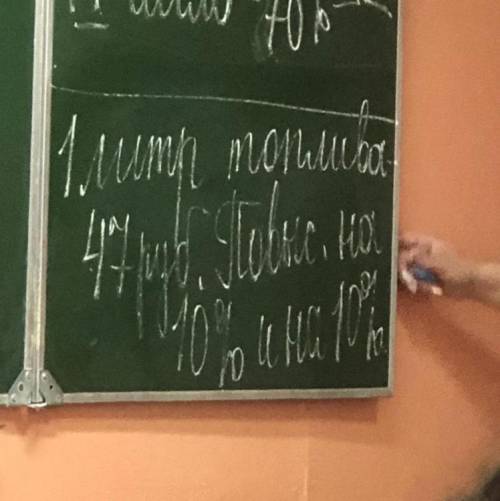 70%
1 литр топлива-
47 руб. Повыс. на
10% и на 10%